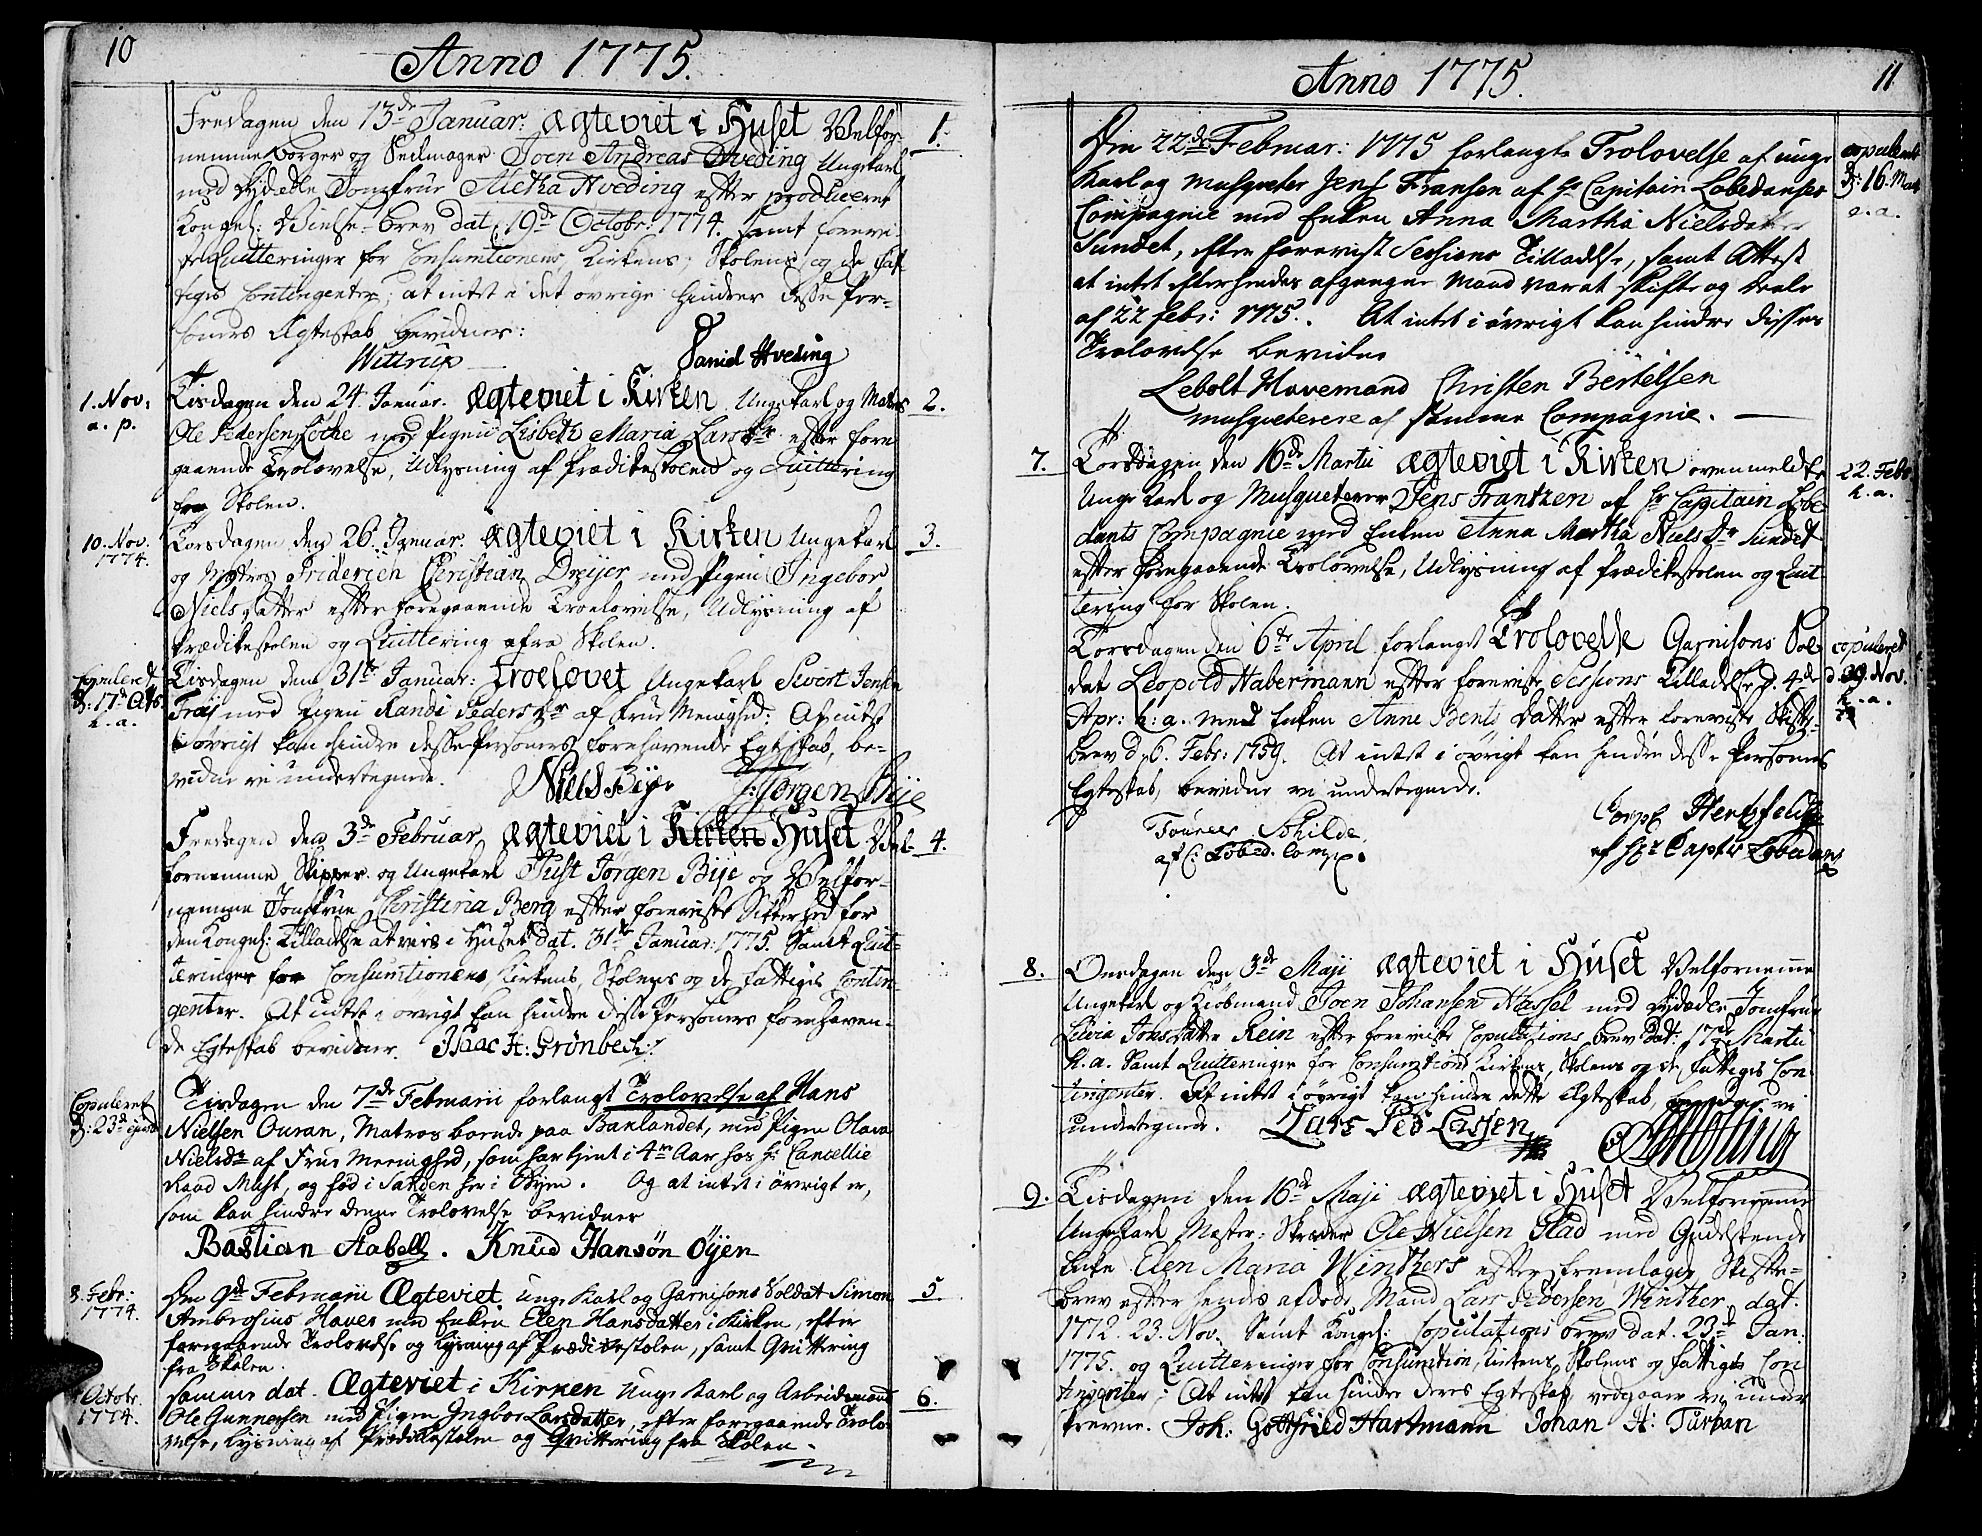 10
Anno 1775.
Fredagen den 13de Januar: Ægteviet i Huset Velfor-
1.
nemme borger og Seilmager Joen Andreas Hveding Ungekarl
med Dydædle Jomfrue Aletha Hveding efter produceret
Kongel: Bevilse-brev dat. 19de Octobr: 1774. samt forevi-
ste Quitteringer for Consumtionens, Kirkens, Skolens og de fat-
tiges Contingenter; at intet i det øvrige hindrer disse Per-
soners Ægteskab bevidner:
Wittrup Daniel Hveding
1. Nov:
a. p.
Tisdagen den 24. Januar. Ægteviet i Kirken Ungekarl og Matros
2.
Ole Pedersen Loche med Pigen Lisbeth Maria Larsdr efter fore
gaaende Trolovelse, Udlysning af Prædikestolen og Quittering
fra Skolen.
10. Nov.
1774.
Torsdagen den 26. Januar. Ægteviet i Kirken Ungekarl
3.
og Matros Friderich Christian Dreijer med Pigen Ingebor
Nielsdatter efter foregaaende Troelovelse, Udlysning af
Prædikestolen og Quittering fra Skolen.
Copulered
D: 17de
h. a.
Tisdagen den 31te Januar: Troelovet Ungekarl Sivert Jensen
Frøj med Pigen Randi Pedersdr af Frue Menighed: At intet
i øvrigt kan hindre disse Personers forehavende Egteskab, be-
vidner vi undertegnede.
Niels Bije J: Jørgen Bije
Fredagen den 3de Februar, Ægteviet i Kirken Huset Vel-
4.
fornemme Skipper og Ungekarl Just Jørgen Bije og Velfor-
nemme Jomfrue Christina Berg efter foreviste Sikkerhed for
den Kongel: Tilladelse at vies i Huset dat. 31te Januar: 1775. Samt Quit-
teringer for Consumtionens, Kirkens, Skolens og de fattiges Contin-
genter. At intet i øvrigt kan hindre disse Personers forehaven-
de Egteskab bevidner. Isaac H: Grønbech:
Copuleret
D: 23de
Tisdagen den 7de Februarii forlangt Trolovelse af Hans
Nielsen Ouran, Matros boende paa Baklandet, med Pigen Olava
Nielsdr af Frue Meenighed, som har tient i 4re Aar hos Hr Cancellie
Raad Must, og fød i Sanden her i Byen. Og at intet i øvrigt er,
som kan hindre denne Trolovelse bevidner
Bastian Aabell. Knud Hansøn Øyen
8. Febr:
1774.
Den 9de Februarii Ægteviet unge Karl og Garnisons Soldat Simon
5.
Ambrosius Haves med Enken Elen Hansdatter i Kirken, efter
foregaaende Trolovelse og Lysning af Prædikestolen, samt Qvittering
fra Skolen.
Octobr.
1774.
Samme dat. Ægteviet i Kirken Unge Karl og Arbeidsmand
6.
Ole Gunnersen med Pigen Ingbor Larsdatter, efter foregaaende Trolo-
velse, Lysning af Prædikestolen og Qvittering fra Skolen.
11
Anno 1775.
Den 22de Februar: 1775 forlangte Trolovelse af unge
copuleret
D: 16. Mart
e. a.
Karl og Musqueter Jens Fransen af Hr Capitain Lobedanses
Compagnie med Enken Anna Martha Nielsdatter
Sundet, efter forevist Sessions Tilladelse, samt Attest
at intet efter hendes afgangne Mand var at skifte og deele
af 22 febr: 1775. At intet i øvrigt kan hindre disses
Trolovelse bevidner
Lebolt Havemand Christen Bertelsen
Musqueterere af samme Compagnie.
7.
Torsdagen den 16de Martii Ægteviet i Kirken ovenmeldte
22. Febr
h. a.
Unge Karl og Musqueterer Jens Frantzen af Hr Capitain Lobe-
dants Compagnie med Enken Anna Martha Nielsdr Sundet
efter foregaaende Trolovelse, Udlysning af Prædikestolen og Quit-
tering for Skolen.
Torsdagen den 6te April forlangt Trolovelse Garnisons Sol-
copuleret
d. 29. Nov.
h. a.
dat Leopold Habermann efter foreviste Sessions Tilladelse d. 4de
Apr: h: a. med Enken Anne Bents datter efter foreviste Skifte-
brev d. 6. Febr: 1759. At intet i øvrigt kan hindre disse Personers
Egteskab, bevidner vi undertegnede.
Schilde
af C: Lobed. Comp.
Corpl Hertzfeldt
af Hr Captn Lobedans
8.
Onsdagen den 3de Maji Ægteviet i Huset Velfornemme
Ungekarl og Kiøbmand Joen Johansen Hassel med Dydædle Jomfrue
Livia Jonsdatter Rein efter foreviste Copulations brev dat: 17de Martii
h. a. Samt Quitteringer for Consumtions Kirkens, Skolens og de fattiges Con-
tingenter. At intet i øvrigt kan hindre dette Ægteskab, bevidner vi
undertegnede. Lars Ped Lassen
9.
Tisdagen den 16de Maji Ægteviet i Huset Velfornemme
Ungekarl Mæster: Skreder Ole Nielsen Stad med Gudelskende
Enke Elen Maria Winthers efter fremlagde Skifte-
brev efter hendes afdøde Mand Lars Iversen Winther dat.
1772. 23. Nov. Samt Kongel: Copulations brev dat. 23de Jan.
1775. og Quitteringer for Consumtion, Kirkens, Skolens og fattiges Con-
tingenter; At intet kan hindre deres Egteskab vedgaaer vi under-
skrevne. Joh: Gottfried Hartmann Johan H: Turban